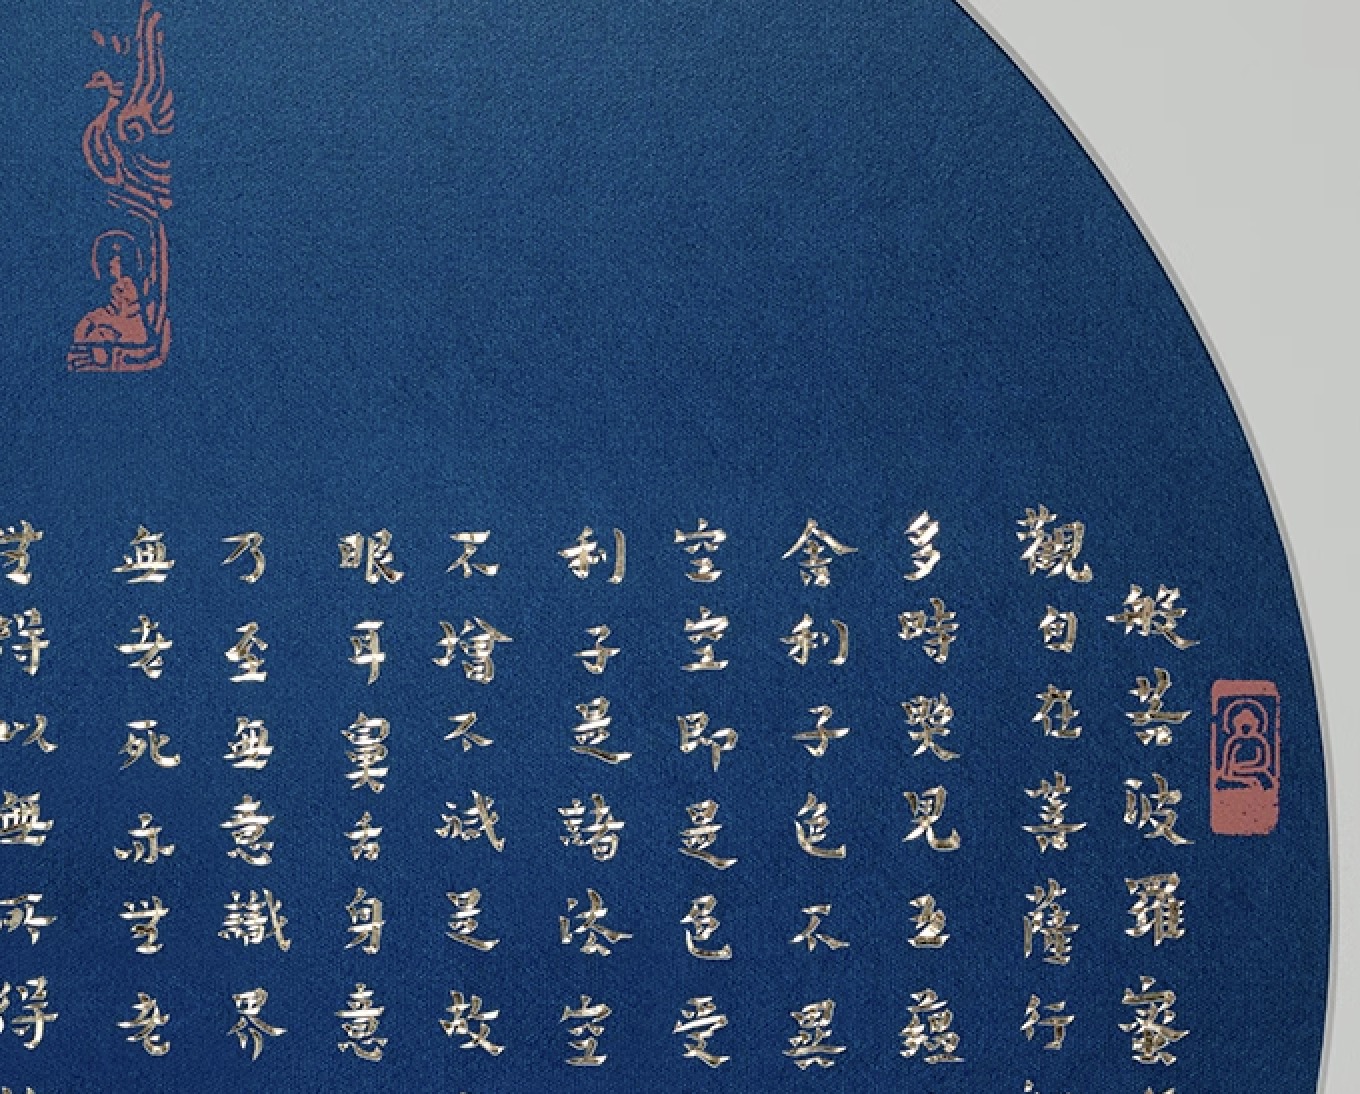 般若波羅蜜
觀自在菩薩行
多時照見五蘊
舍利子色不異
空空即是色受
利子是諸法空
不增不減是故
眼耳鼻舌身意
乃至無意識界
無老死亦無老
無得以無所得